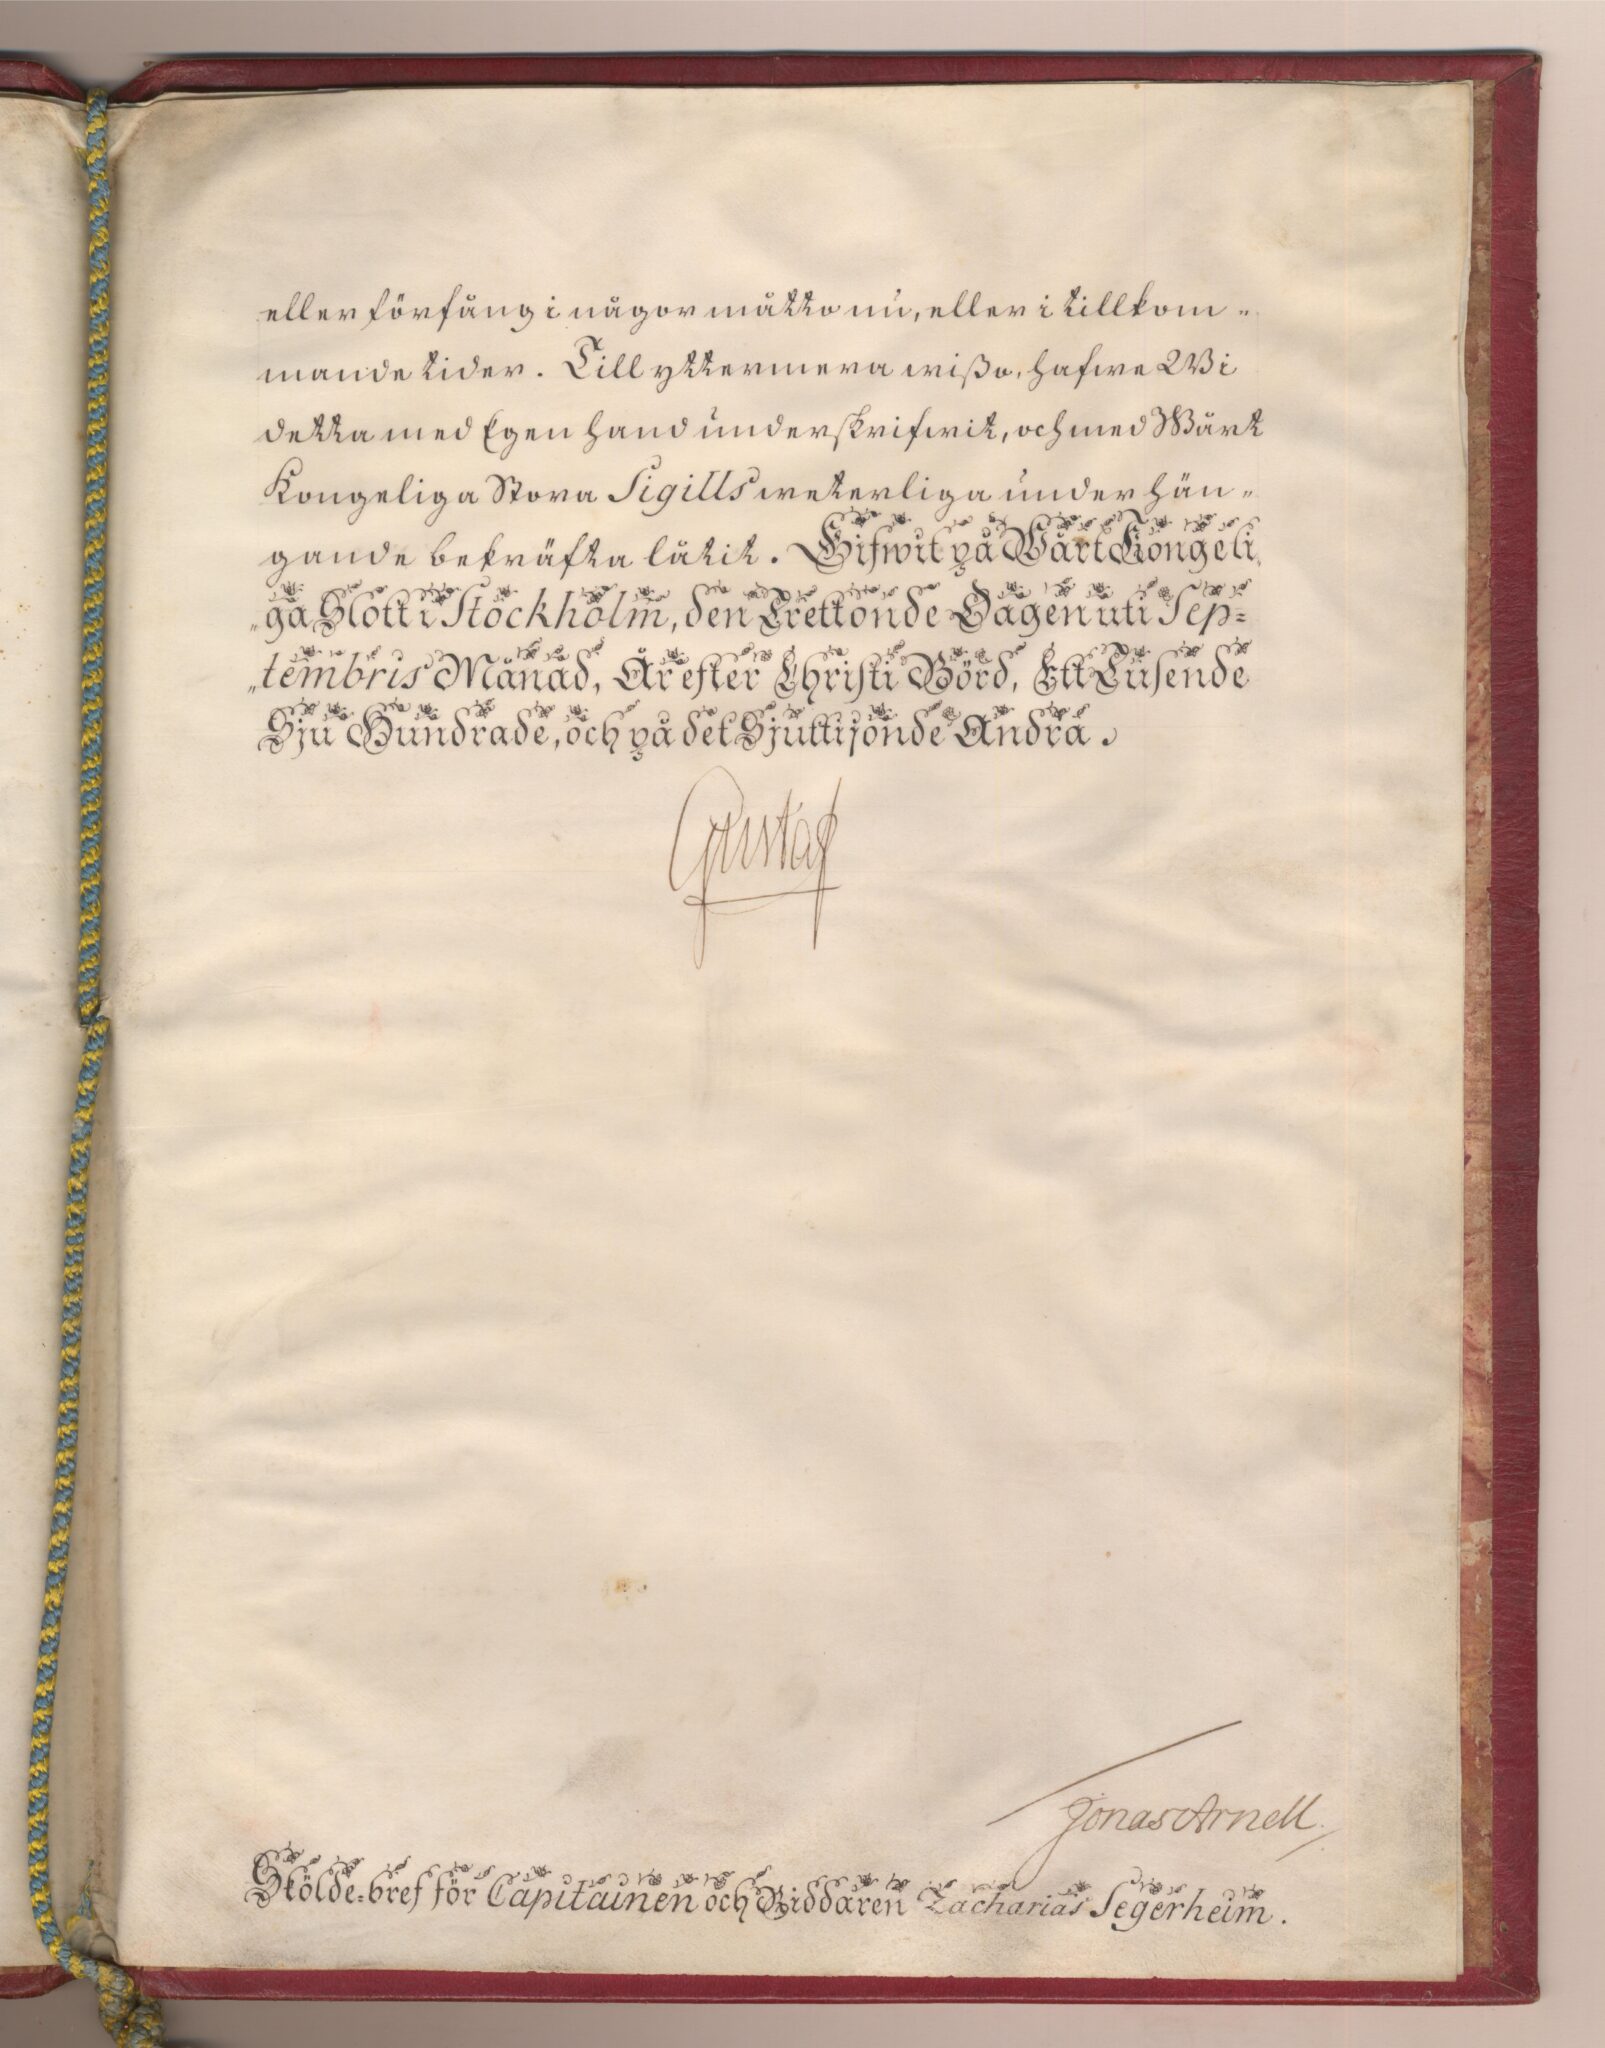 eller förfång i någor måtto nu, eller i tillkom-
mande tider. Till yttermera wißo, hafwe Wi
detta med Egen hand underskrifwit, och med Wårt
Kongeliga Stora Sigills weterliga underhän-
gande bekräfta låtit. Gifwit på Wårt Kongeli-
ga Slott i Stockholm, den Trettonde Dagen uti Sep-
tembris Månad, År efter Christi Börd, Ett Tusende
Sju Hundrade, och på det Sjuttijonde Andra.
Gustaf
Jonas Arnell.
Sköldebref för Capitainen och Riddaren Zacharias Segerheim.